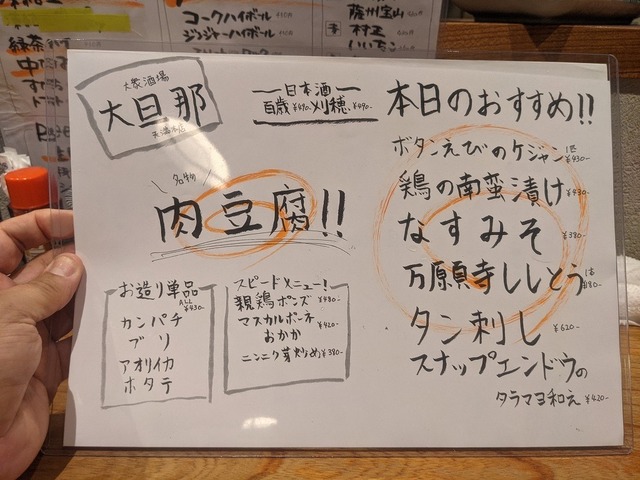 コークハイボール
ジンジャーハイボール
薩州宝山
村正
いいちこ
緑茶
大衆酒場
大旦那
天満本店
日本酒
百歳 ¥490- 刈穂 ¥490-
本日のおすすめ!!
ボタンえびのケジャン 1匹 ¥430-
鶏の南蛮漬け ¥430-
なすみそ ¥380-
万願寺ししとう 1本 ¥180-
タン刺し ¥620-
スナップエンドウの
タラマヨ和え ¥420-
名物
肉豆腐!!
お造り単品
ALL ¥430-
カンパチ
ブリ
アオリイカ
ホタテ
スピードメニュー!
親鶏ポンズ ¥480-
マスカルポーネ ¥420-
おかか
ニンニク芽炒め ¥380-